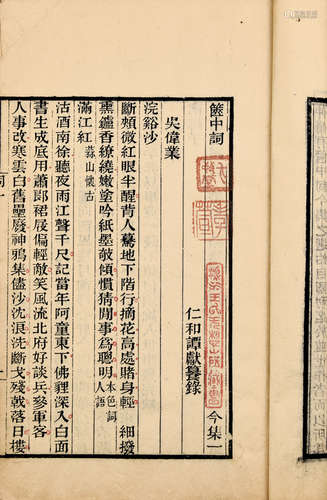 篋中詞 今集一
仁和譚獻纂錄
吳偉業
浣谿沙
斷頰微紅眼半醒背人驀地下階行摘花高處賭身輕 細撥
熏鑪香繚繞嫩塗吟紙墨敧傾慣猜閒事為聰明 本色詞人語
滿江紅 蒜山懷古
沽酒南徐聽夜雨江聲千尺記當年阿童東下佛貍深入白面
書生成底用蕭郎裙屐偏輕敵笑風流北府好談兵參軍客
人事改寒雲白舊壘廢神鴉集儘沙沈浪洗斷戈殘戟落日樓